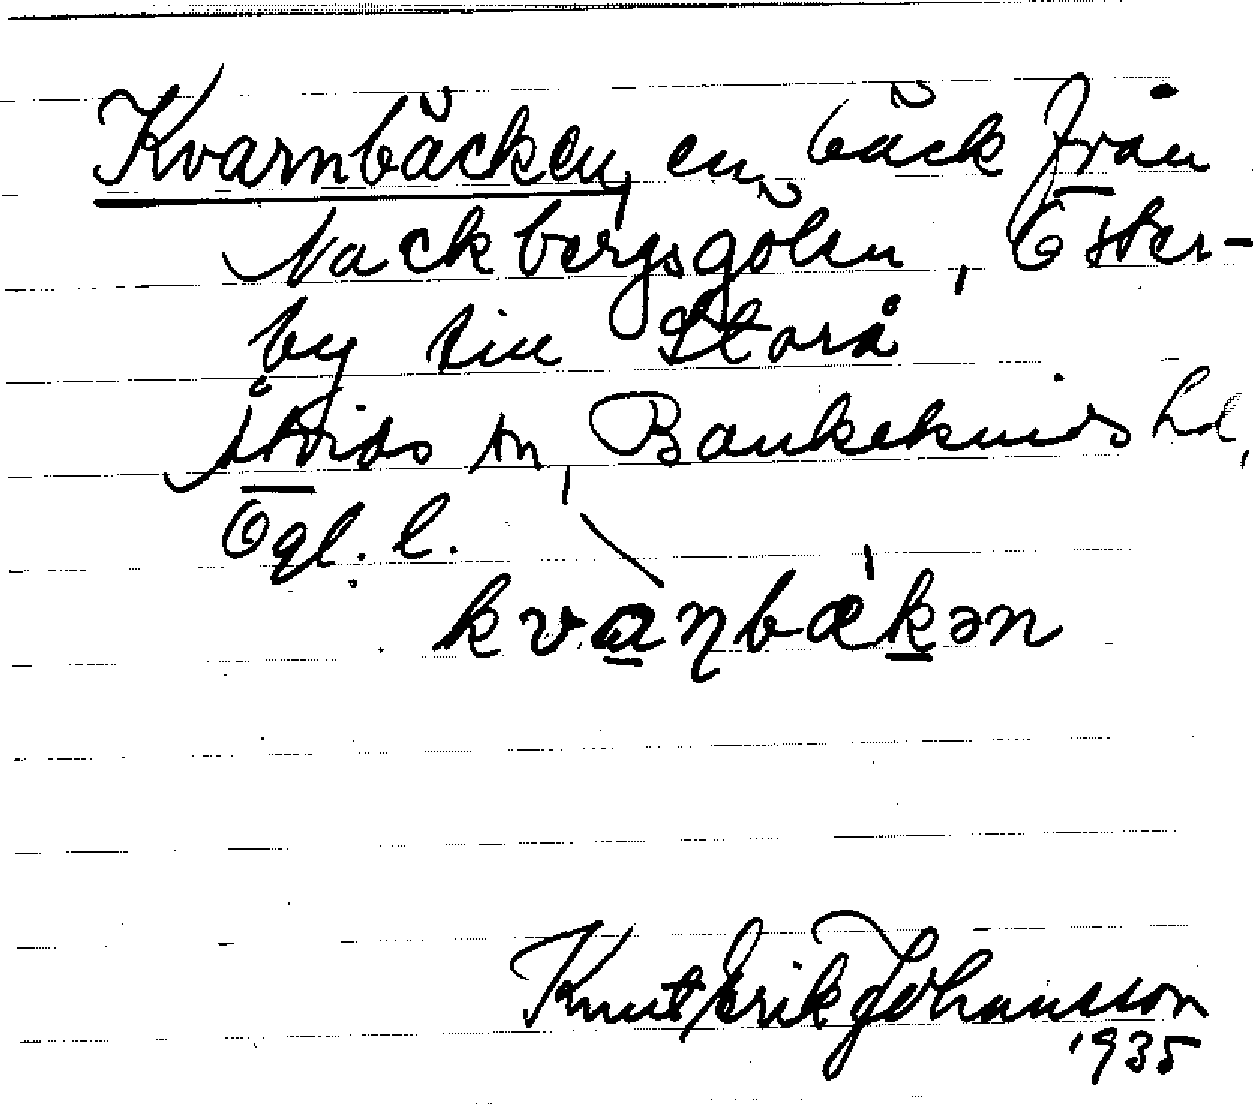 Kvarnbäcken, en bäck från
Nackbergsgölen, Öster-
by till Storå
Åtvids sn, Bankekinds hd,
Ögl. l.
kvaṉbæ'kən
Knut Erik Johansson
1935